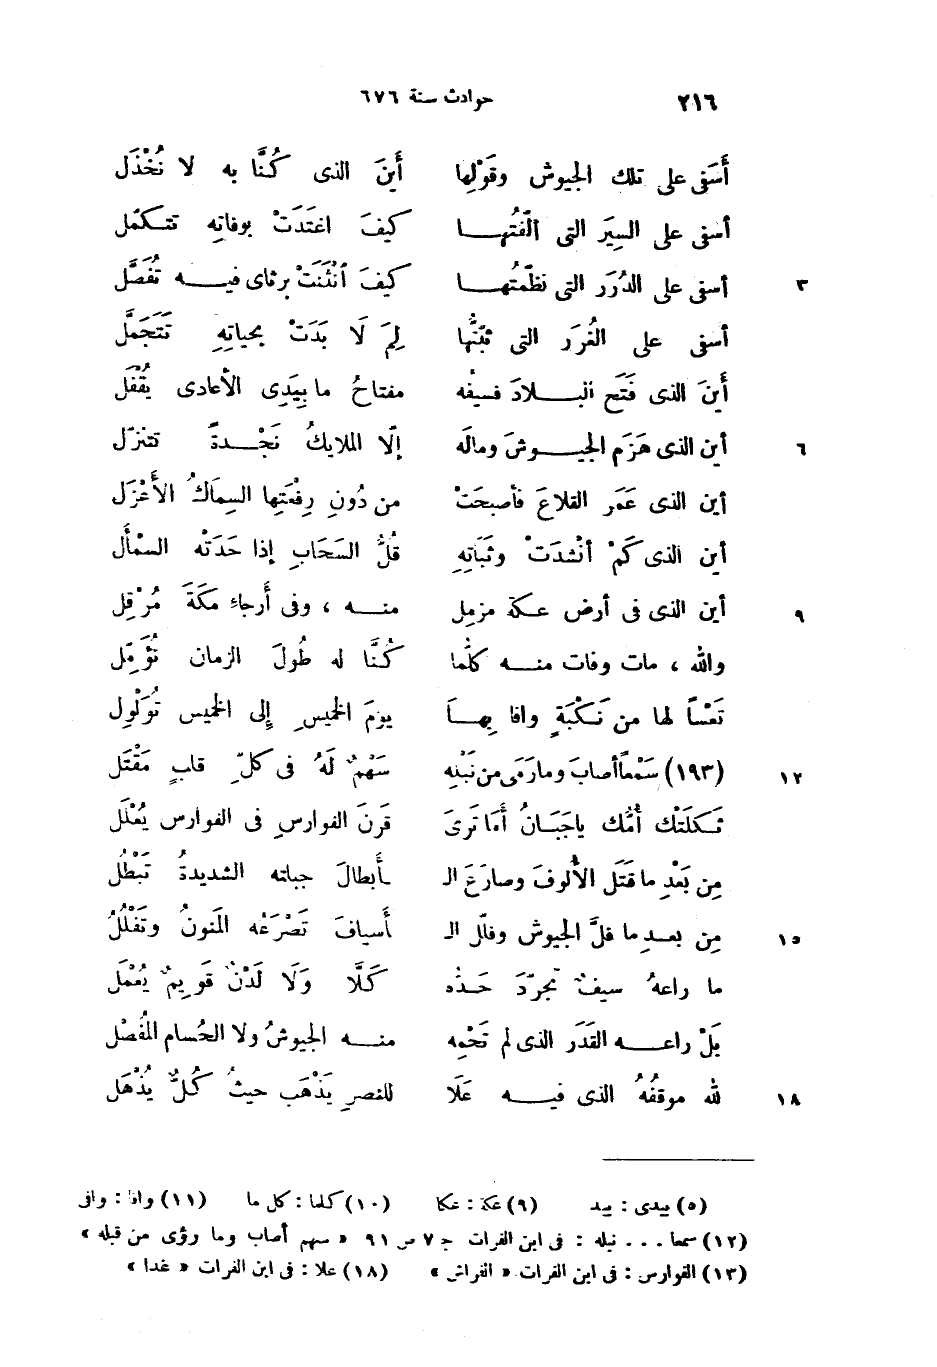 ٢١٦ حوادث سنة ٦٧٦
أَسَفى على تلك الجيوش وقَوْلِها أَينَ الذى كُنَّا به لا نُخْذَل
أسفى على السِيَر التى ألّفتُهـا كيفَ اغتَدَتْ بوفاتِه تتكمّل
٣ أسفى على الدُرَر التى نظّمتُهـا كيفَ أنثَنَتْ برثاى فيـه تُفَصَّل
أسفى على الغُرَر التى ثبّتُّها لِمَ لَا بَدَتْ بحياتِهِ تَتَجَمَّل
أَينَ الذى فَتَح البـلادَ فسيفُه مفتاحُ ما بِيَدِى الأعادى يُقْفَل
٦ أين الذى هَزَم الجيـوشَ ومالَه إلّا الملايكُ نَجْـدةً تتنزّل
أين الذى عَمَر القلاعَ فأصبحَتْ من دُونِ رِفْعَتِها السِماكُ الأَعْزَل
أين الذى كَمْ أنْشدَتْ وثَباتِهِ قُلُّ السَحَابِ إذا حَدَتْه السمْأَل
٩ أين الذى فى أرض عـكّة مزمِل منـه ، وفى أَرجاءِ مَكَةَ مُرْقِل
والله ، مات وفات منـه كلّما كُنَّا له طُولَ الزمان نُؤَمِّل
تَعْساً لها من نَـكْبَةٍ وافا بِهـا يومَ الخميسِ إلى الخميس تُوَلْوِل
١٢ (١٩٣) سَمْعاً أصابَ وما رَمَى من نَبْلِه سَهْمٌ لَهُ فى كلّ قابٍ مَقْتَل
ثَـكَلَتْك أُمُّك ياجَبَـانُ أَمَا تَرىَ قرنَ الفوارسِ فى الفوارس يُعْلَل
مِن بَعْدِ ما قَتَل الأُلوفَ وصارَعَ الـ ـأبطالَ جباته الشديدةُ تَبْطُل
١٥ مِن بعـدِ ما فلَّ الجيوشَ وفلّل الـ أسيافَ تَصْرَعْه المنونُ وتَفْلُلُ
ما راعهُ سيفٌ تجرّدَ حَـدّه كَلَّا وَلَا لَدْنٌ قَوِيمٌ يُعْمَل
بَلْ راعـه القَدَر الذى لم تَحْمِه منـه الجيوشُ ولا الحُسام المُفْصْل
١٨ لله موقفُهُ الذى فيـه عَلَا للنصرِ يَذْهَب حيثُ كُلٌّ يُذْهَل
(٥) بيدى : بيد (٩) عكة : عكا (١٠) كلما : كل ما (١١) وافا : وافى
(١٢) سمعا . . . نبله : فى ابن الفرات ج ٧ ص ٩١ « سهم أصاب وما رؤى من قبله »
(١٣) الفوارس : فى ابن الفرات « الفراش » (١٨) علا : فى ابن الفرات « غدا »